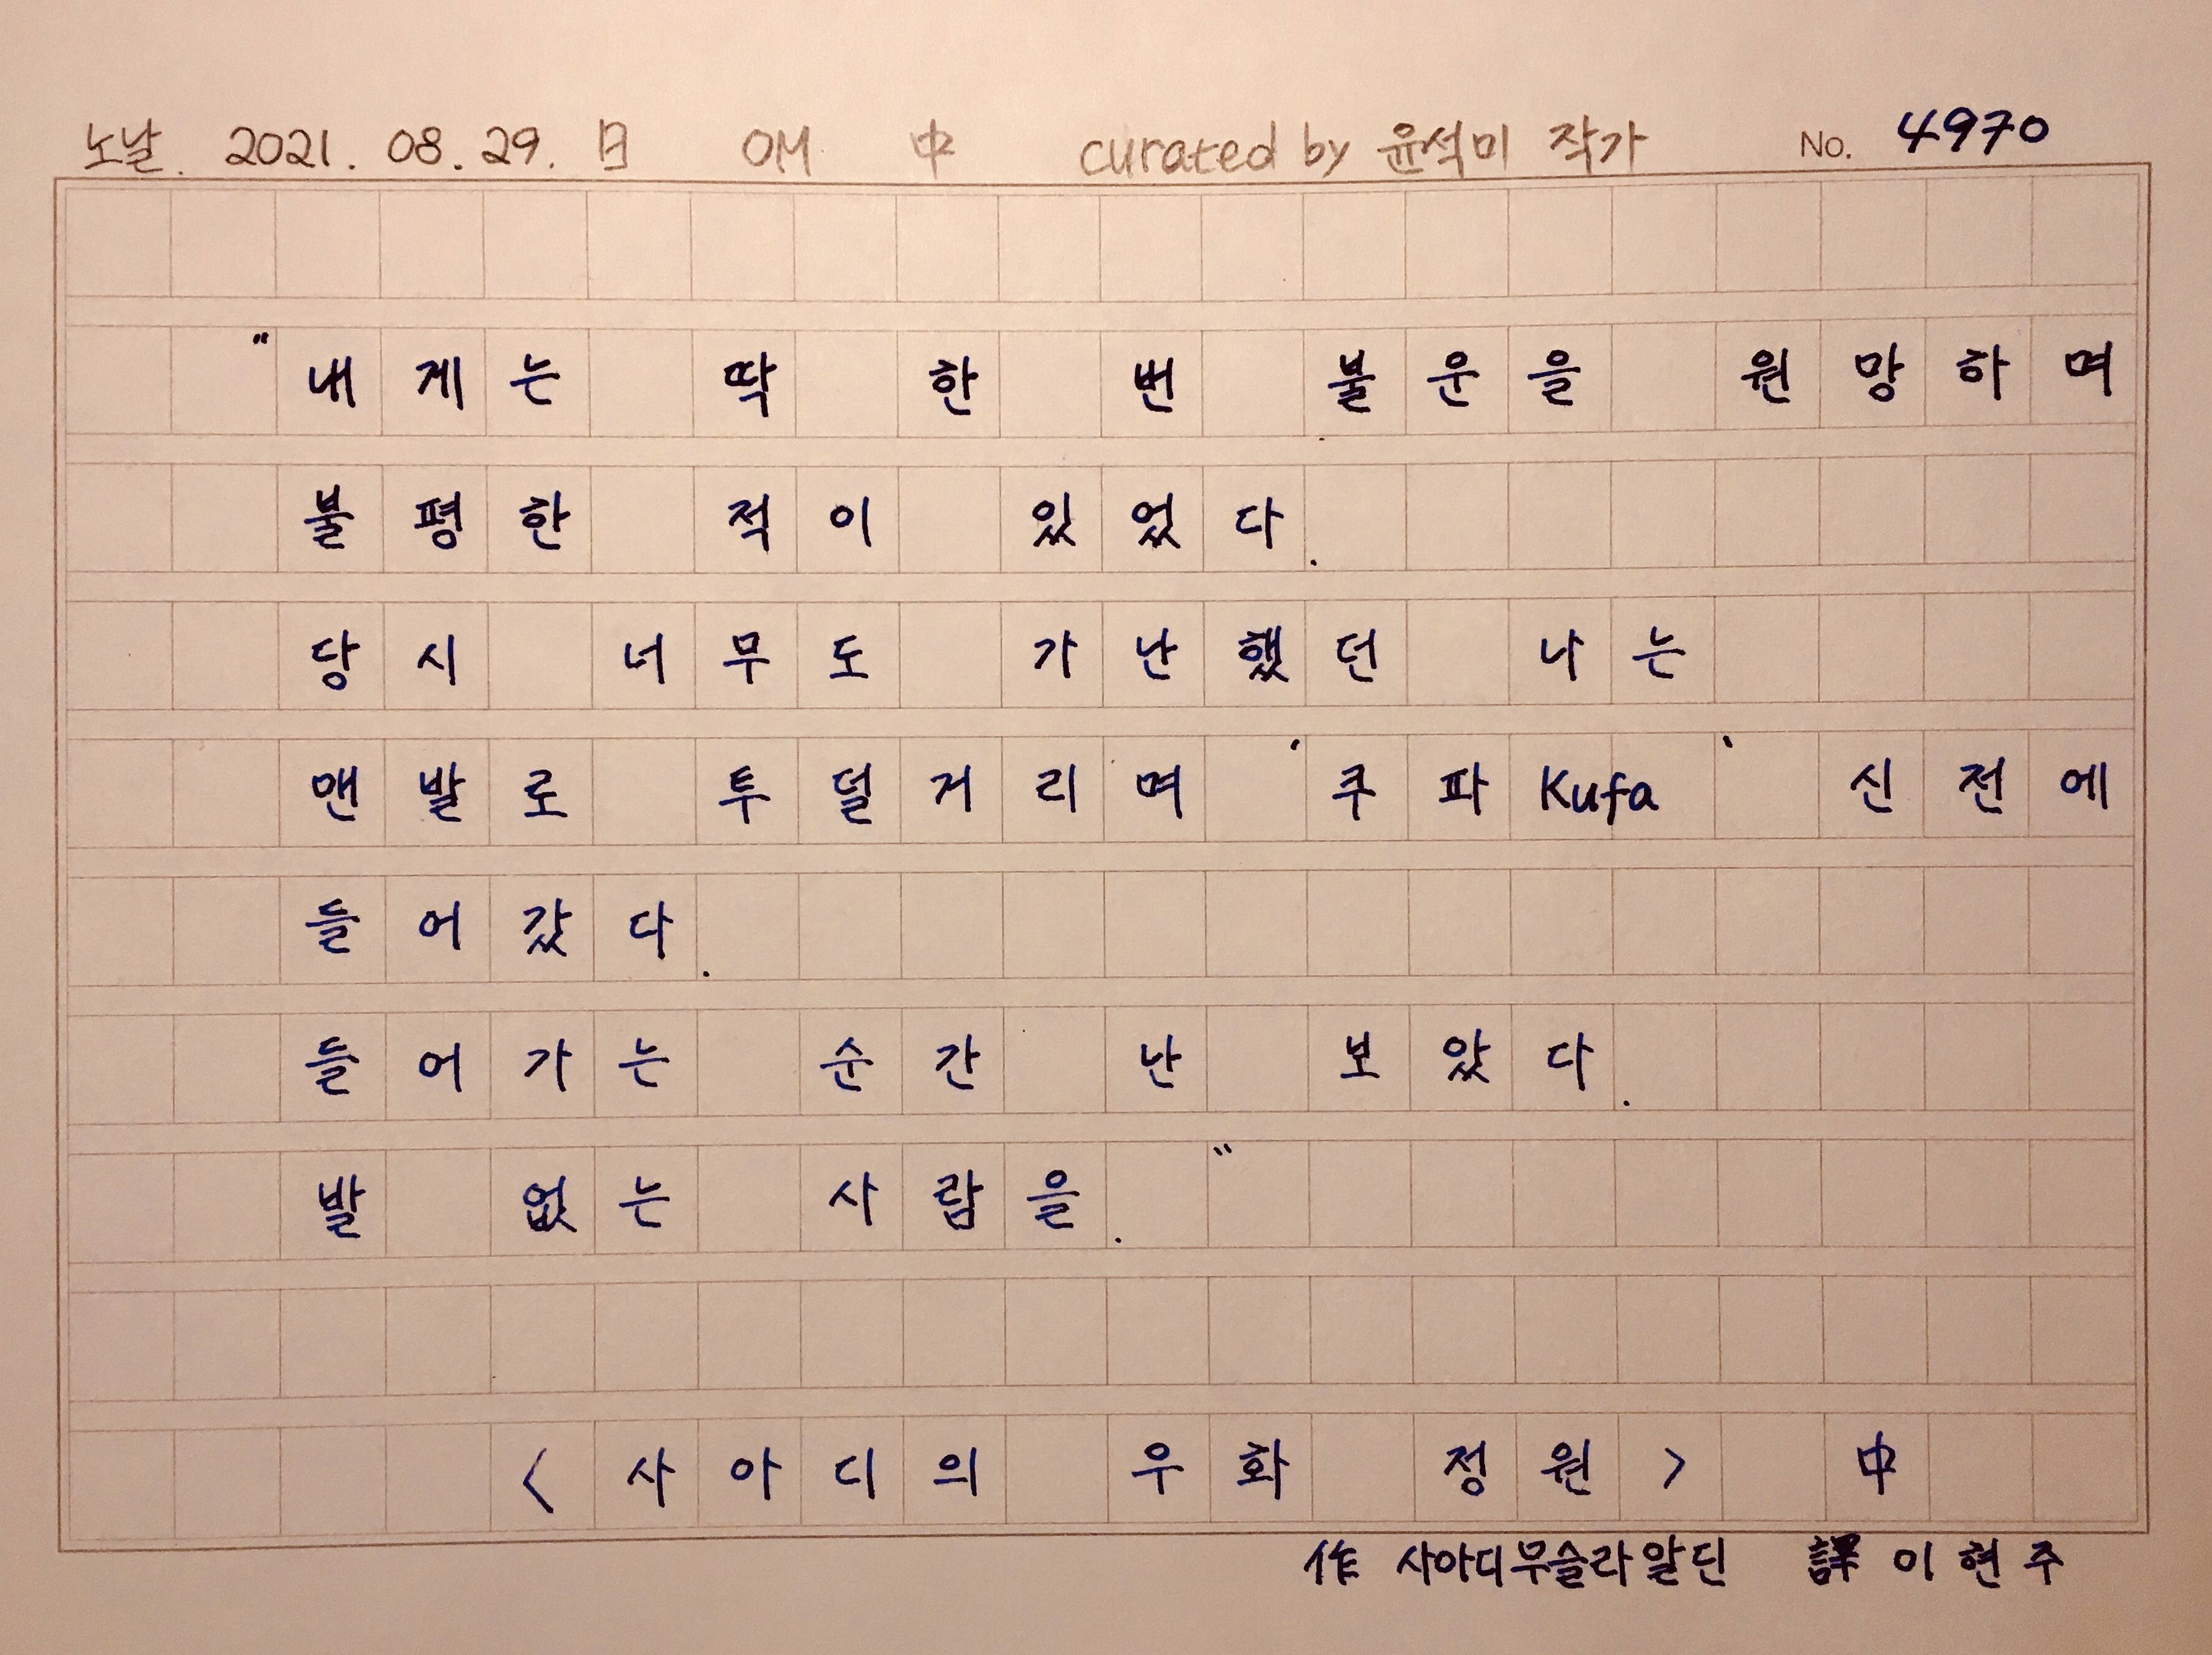 노날. 2021. 08. 29. 日 OM 中 curated by 윤석미 작가 No. 4970
"내게는 딱 한 번 불운을 원망하며
불평한 적이 있었다.
당시 너무도 가난했던 나는
맨발로 투덜거리며 '쿠파Kufa' 신전에
들어갔다.
들어가는 순간 난 보았다.
발 없는 사람을."
<사아디의 우화 정원> 中
作 사아디 무슬라 알딘 譯 이현주